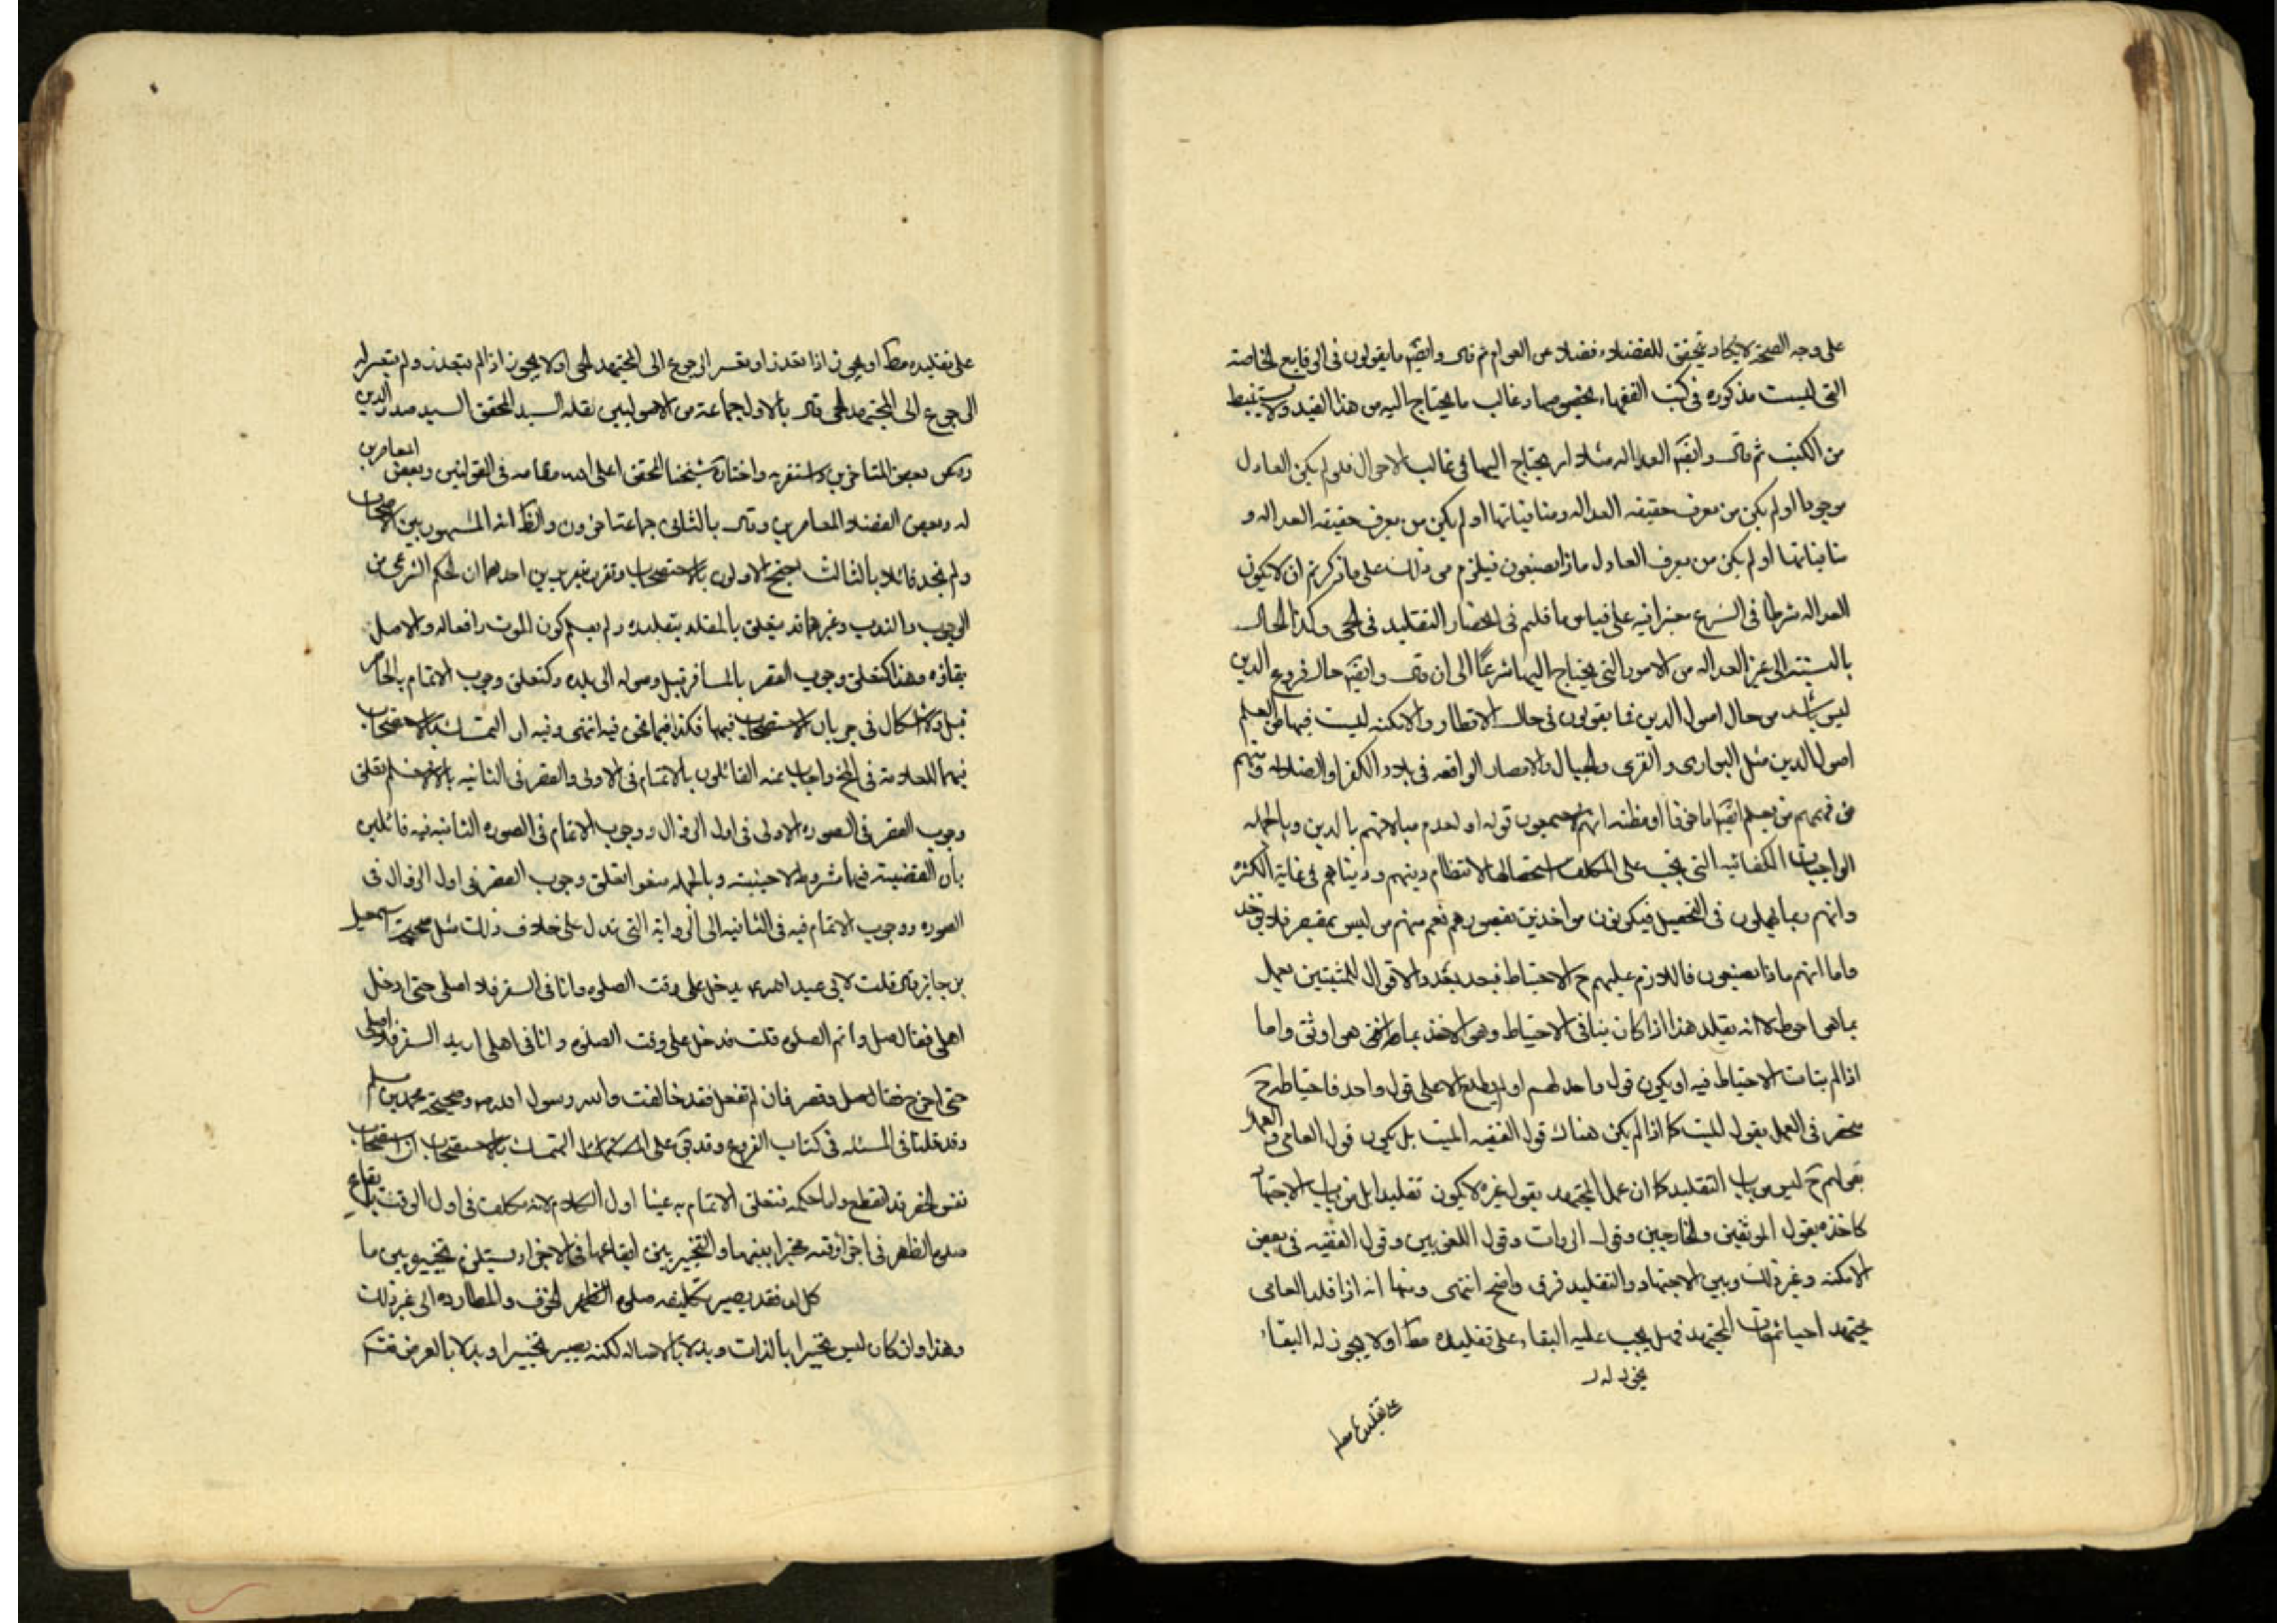 على وجه الصحة لا يكاد يتحقق للفضلاء فضلا عن العوام ثم قال وايضا ما يقولون في الوقايع الخاصة
التي ليست مذكوره في كتب الفقهاء بخصوصها وغالب ما يحتاج اليه من هذا القبيد ولا يستنبط
من الكتب ثم قال وايضا العداله مثلا امر يحتاج اليها في غالب الاحوال فلو لم يكن العادل
موجودا او لم يكن من يعرف حقيقه العداله ومنافياتها او لم يكن من يعرف حقيقه العداله و
منافياتها او لم يكن من يعرف العادل ماذا يصنعون فيلزم من ذلك على ما ذكرتم ان لا يكون
العداله شرطا في الشرع معتبرا فيه على قياس ما قلتم في انحصار التقليد في الحي وكذا الحال
بالنسبة الى غير العداله من الامور التي يحتاج اليها شرعا الى ان قال وايضا حال فروع الدين
ليس باشد من حال اصول الدين فما يقولون في حال الاقطار والامكنه ليست فيها من العلم
اصول الدين مثل البوارى والقرى والجبال والامصار الواقعه في بلاد الكفر او الضلاله
من يعلم ايضا اما خوفا او مظنه انهم لا يسمعون قوله او لعدم مبالاتهم بالدين وبالجمله
الواجبات الكفائيه التي يجب على المكلف استحصالها لانتظام دينهم ودنياهم في غاية الكثره
وانهم ربما يهملون في التحصيل فيكونون مواخذين بتقصيرهم نعم منهم من ليس بمقصر فلا
واما انهم ماذا يصنعون فاللازم عليهم ح الاحتياط والاقوال للمثبتين يعمل
بما هو احوط لا انه يقلد هذا اذا كان بناؤ الاحتياط وهو الاخذ بما هو اوثق واما
اذا لم يتات الاحتياط فيه او يكون قول واحد لهم او لم يطلع الا على قول واحد فاحتياطه ح
منحصر في العمل بقول الميت كما اذا لم يكن هناك قول الفقيه الميت بل يكون قول العامي والعمل
بقولهم ح ليس من باب التقليد كما ان عمل المجتهد بقول غيره لا يكون تقليدا بل من باب الاجتهاد
كاخذه بقول الموثقين والجارحين وقول الروات وقول اللغويين وقول الفقيه في بعض
الامكنه وغير ذلك وبين الاجتهاد والتقليد فرق واضح انتهى ومنها انه اذا قلد العامي
مجتهدا حيا ثم مات المجتهد فهل يجب عليه البقاء على تقليده مط او لا يجوز له البقاء
يجوز له
على تقليده مط
على تقليده مط او يجوز اذا تعذر او تعسر الرجوع الى المجتهد الحي او لا يجوز اذا لم يتعذر ولم يتعسر له
الرجوع الى المجتهد الحي قال بالاول جماعة من الاصوليين نقله السيد المحقق السيد صدر الدين
وبعض المتاخرين واستقربه واختاره شيخنا المحقق اعلى الله مقامه في القوانين وبعض المعاصرين
له وبعض الفضلاء المعاصرين وقال بالثاني جماعة اخرون والظ انه المشهور بين الاصحاب
ولم نجد قائلا بالثالث احتج الاولون بالاستصحاب وتقريره تقريرين احدهما ان الحكم الشرعي من
الوجوب والندب وغيرهما قد يتعلق بالمقلد بتقليده ولم يعلم كون الموت رافعا له والاصل
بقاؤه وهذا كتعلق وجوب القصر بالمسافر قبل وصوله الى بلده وكتعلق وجوب الاتمام بالحاضر
قبل ولا اشكال في جريان الاستصحاب فيهما فكذا فيما نحن فيه انتهى وفيه ان التمسك بالاستصحاب
فيهما للعلامة في واجاب عنه القائلون بالاتمام في الاولى والقصر في الثانيه تعلق
وجوب القصر في الصوره الاولى في اول الزوال ووجوب الاتمام في الصوره الثانيه فيه قائلين
بان القضية فيهما مشروطة لا حينية وبالجمله منعوا تعلق وجوب القصر في اول الزوال في
الصوره ووجوب الاتمام فيه في الثانيه الى الروايه التي تدل على خلاف ذلك مثل صحيحة اسمعيل
بن جابر قال قلت لابي عبد الله ع يدخل على وقت الصلوه وانا في السفر فلا اصلي حتى ادخل
اهلي فقال صل واتم الصلوه قلت فدخل على وقت الصلوه وانا في اهلي اريد السفر فلا اصلي
حتى اخرج فقال صل وقصر فان لم تفعل فقد خالفت والله رسول الله ص وصحيحة محمد بن مسلم
وقد قلنا في المسئله في كتاب الفروع وقد بقى على التمسك بالاستصحاب ان استصحاب
نفس الحضر قد انقطع واما حكمه فتعلق الاتمام به عينا اول الكلام لانه مكلف في اول الوقت بايقاع
صلوه الظهر في اجزاء وقته مخيرا بينهما والتخيير بين ايقاعها في الاجزاء يستلزم تخييره بين ما
كل له فقد يصير تكليفه صلوه الظهر الخوف والمطارده الى غير ذلك
وهذا وان كان ليس تخييرا بالذات وبدلا بالاصاله لكنه يصير تخييرا وبدلا بالعرض